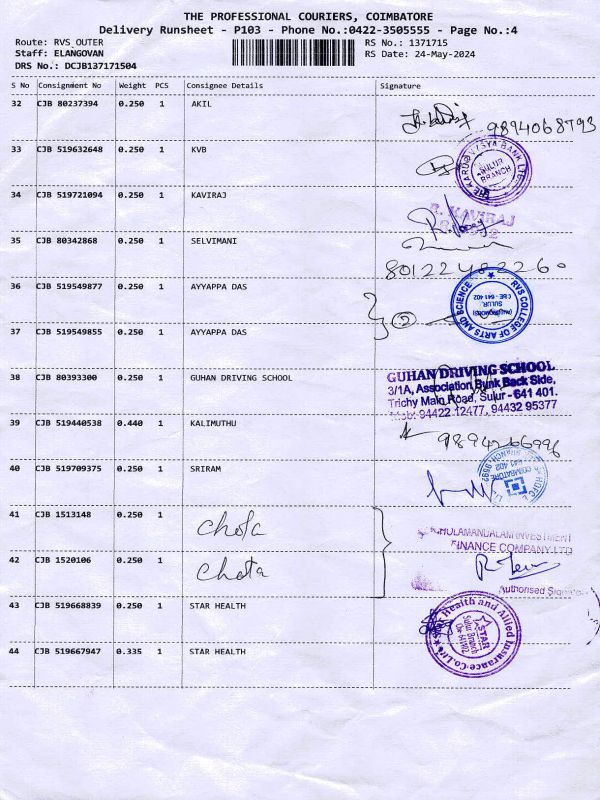 THE PROFESSIONAL COURIERS, COIMBATORE
Delivery Runsheet - P103 - Phone No.:0422-3505555 - Page No.:4
Route: RVS_OUTER RS No.: 1371715
Staff: ELANGOVAN RS Date: 24-May-2024
DRS No.: DCJB137171504
S No Consignment No Weight PCS Consignee Details Signature
32 CJB 80237394 0.250 1 AKIL
9894068793
33 CJB 519632648 0.250 1 KVB
THE KARUR VYSYA BANK LTD
SULUR BRANCH
34 CJB 519721094 0.250 1 KAVIRAJ
R. KAVIRAJ
35 CJB 80342868 0.250 1 SELVIMANI
36 CJB 519549877 0.250 1 AYYAPPA DAS
RVS COLLEGE OF ARTS AND SCIENCE
(AUTONOMOUS)
SULUR,
CBE - 641 402
2
37 CJB 519549855 0.250 1 AYYAPPA DAS
38 CJB 80393300 0.250 1 GUHAN DRIVING SCHOOL
GUHAN DRIVING SCHOOL
3/1A, Association Bunk Back Side,
Trichy Main Road, Sulur - 641 401.
Mob: 94422 12477, 94432 95377
39 CJB 519440538 0.440 1 KALIMUTHU
40 CJB 519709375 0.250 1 SRIRAM
41 CJB 1513148 0.250 1 Chola
CHOLAMANDALAM INVESTMENT
FINANCE COMPANY LTD
42 CJB 1520106 0.250 1 Chola
Authorised
43 CJB 519668839 0.250 1 STAR HEALTH
Health and Allied Insurance Co.Ltd
STAR
Sulur Branch
44 CJB 519667947 0.335 1 STAR HEALTH